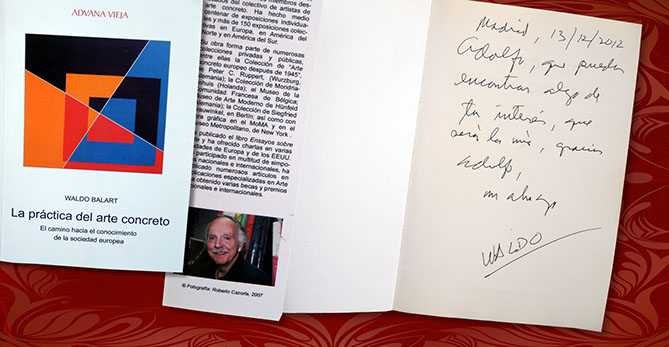 ADVANA VIEJA
WALDO BALART
La práctica del arte concreto
El camino hacia el conocimiento
de la sociedad europea
del colectivo de artistas de
te concreto. Ha hecho medio
centenar de exposiciones individua-
les y más de 150 exposiciones colec-
tivas en Europa, en América del
Norte y en América del Sur.
Su obra forma parte de numerosas
colecciones privadas y públicas,
entre ellas la Colección de "Arte
concreto europeo después de 1945",
de Peter C. Ruppert, (Wurzburg,
Alemania); la Colección de Mondria-
nhuis (Holanda); el Museo de la
Comunidad Francesa de Bélgica;
Museo de Arte Moderno de Hünfeld
Alemania); la Colección de Siegfried
Grauwinkel, en Berlín; así como con
obra gráfica en el MoMA y en el
Museo Metropolitano, de New York.
publicado el libro Ensayos sobre
arte y ha ofrecido charlas en varias
ciudades de Europa y de los EEUU.
participado en multitud de simpo-
nacionales e internacionales, ha
publicado numerosos artículos en
publicaciones especializadas en Arte
obtenido varias becas y premios
nacionales e internacionales.
© Fotografía: Roberto Cazorla, 2007
Madrid, 13/12/2012
Adolfo, que puedas
encontrar algo de
tu interés, que
será la mía, gracias
Adolfo,
un abrazo
WALDO